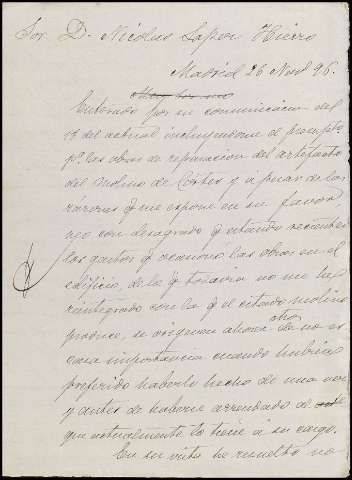 Sor. D. Nicolas Lopez Hierro
Madrid 26 Novbre 96.
Enterado por su comunicacion del
13 del actual incluyendome el presupto
pa. las obras de reparacion del artefacto
del Molino de Cortes y a pesar de las
razones q. me expone en su favor,
veo con desagrado q. estando recientes
los gastos q. ocasionó las obras en el
edificio, de lo q. todavia no me he
reintegrado con lo q. el citado molino
produce, se originen ahora otros de no es-
casa importancia cuando hubiera
preferido haberlo hecho de una vez
y antes de haberse arrendado
que naturalmente lo tiene á su cargo.
En su vista he resuelto no